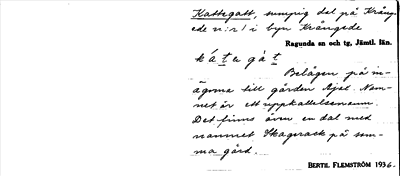 Kattegatt, sumpig del på Krång-
ede n:r 1 i byn Krångede
Ragunda sn och tg, Jämtl. län.
kátegàt
Belägen på in-
ägorna till gården Ajal. Nam-
net är ett uppkallelsenamn.
Det finns även en dal med
namnet Skagerack på sam-
ma gård.
BERTIL FLEMSTRÖM 1936.